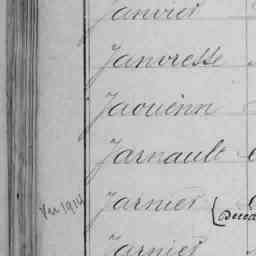 Janvier
Janvresse
Jaouënn
Jarnault
Vu 1914 Jarnier
Jarnier